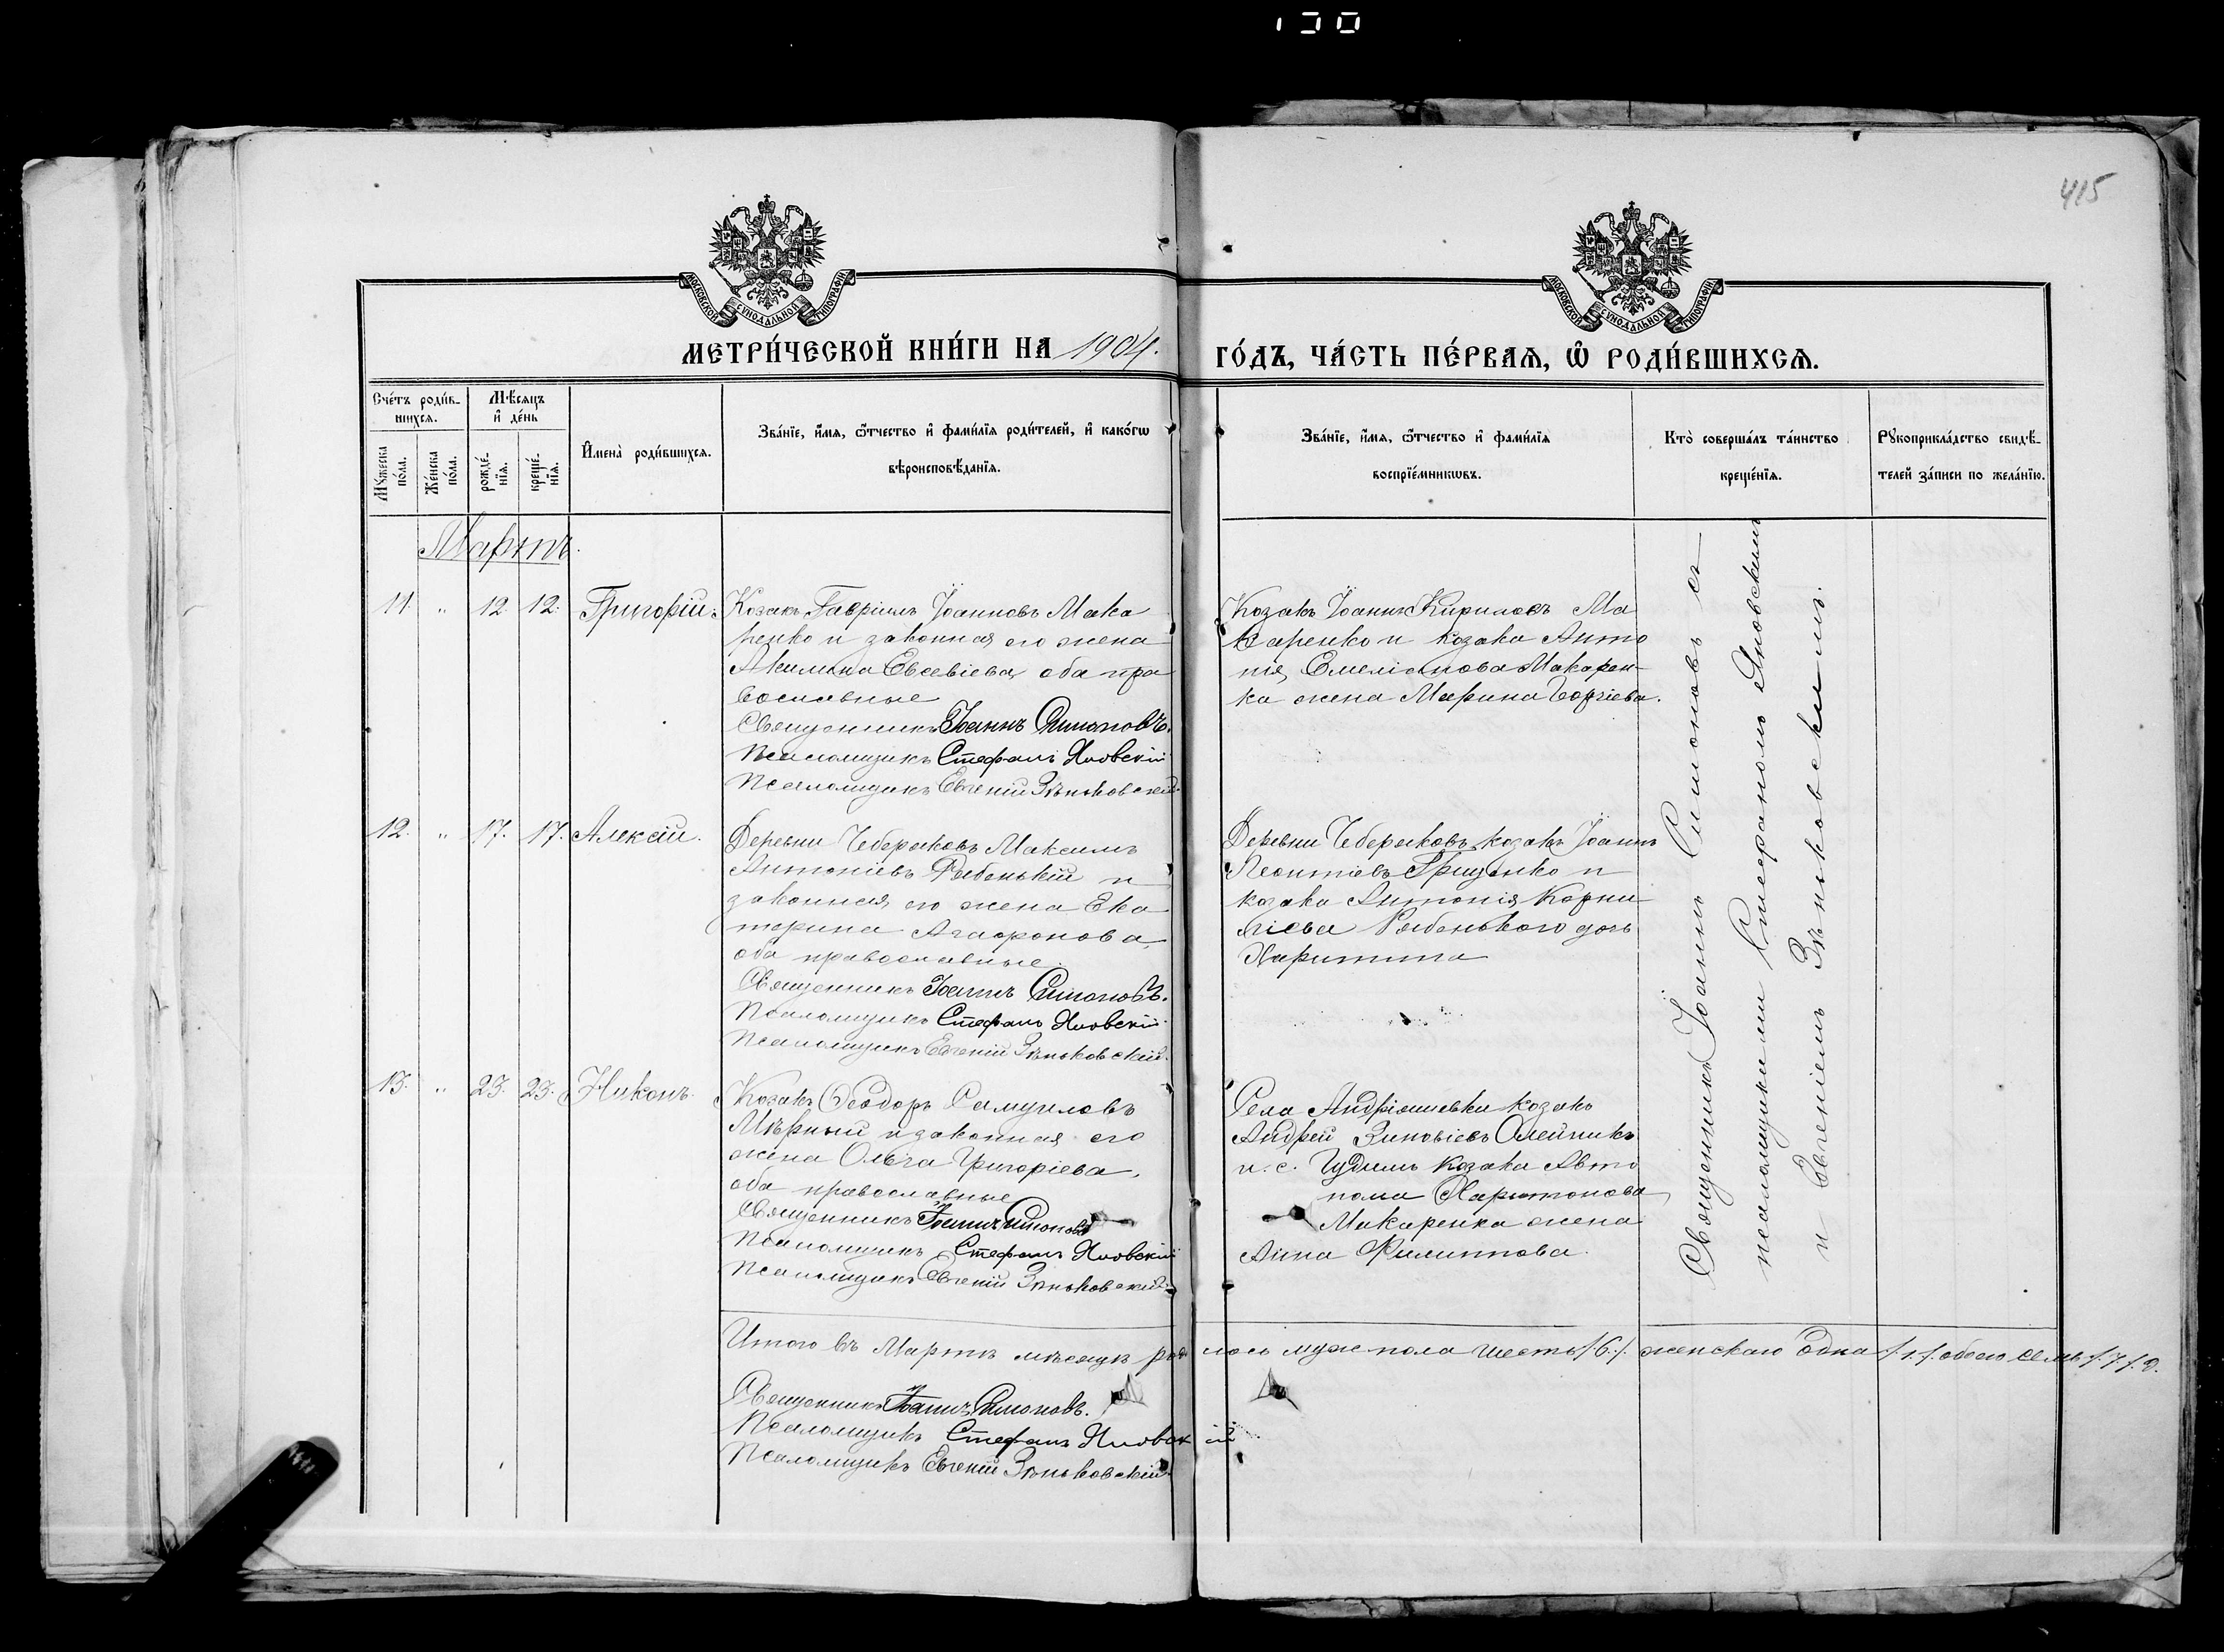 415
МОСКОВСКОЙ СѴНОДАЛЬНОЙ ТИПОГРАФІИ
МОСКОВСКОЙ СѴНОДАЛЬНОЙ ТИПОГРАФІИ
МЕТРИ́ЧЕСКОЙ КНИ́ГИ НА 1904. ГО́ДЪ, ЧА́СТЬ ПЕ́РВАѦ, Ѽ РОДИ́ВШИХСѦ.
Счетъ роди́в-
шихсѧ.
Мꙋжеска
по́ла.
Же́нска
по́ла.
Мѣ́сѧцъ
и҆ де́нь
рожде́-
нїѧ.
креще́-
нїѧ.
И҆мена̀ роди́вшихсѧ.
Зва́нїе, и҆́мѧ, ѻ҆́тчество и҆ фами́лїѧ роди́телей, и҆ како́гѡ
вѣроисповѣ́данїѧ.
Зва́нїе, и҆́мѧ, ѻ҆́тчество и҆ фами́лїѧ
воспрїе́мникѡвъ.
Кто̀ соверша́лъ та́инство
креще́нїѧ.
Рꙋкоприкла́дство свидѣ́-
телей за́писи по жела́нїю.
Мартъ.
11. " 12. 12. Григорій.
Козакъ Гавріилъ Іоанновъ Мака
ренко и законная его жена
Акилина Евсевіева, оба пра
вославные
Священникъ Іоаннъ Симоновъ.
Псаломщикъ Стефанъ Яновскій
Псаломщикъ Евгеній Зѣньковскій.
Козакъ Іоаннъ Кириловъ Ма
каренко и козака Анто
нія Емеліанова Макарен-
ка жена Марина Георгіева.
12. " 17. 17. Алексій.
Деревни Чеберяковъ Максимъ
Антоніевъ Рябенькій и
законная его жена Ека
терина Агафонова,
оба православные.
Священникъ Іоаннъ Симоновъ.
Псаломщикъ Стефанъ Яновскій
Псаломщикъ Евгеній Зѣньковскій.
Деревни Чеберяковъ козакъ Іоаннъ
Леонтіевъ Грищенко и
козака Антонія Корни
ліева Рябенького дочь
Харитина
13. " 23. 23. Никонъ.
Козакъ Ѳеодоръ Самуиловъ
Мѣрный и законная его
жена Ольга Григоріева,
оба православные
Священникъ Іоаннъ Симоновъ
Псаломщикъ Стефанъ Яновскій
Псаломщикъ Евгеній Зѣньковскій.
Села Андріяшевки козакъ
Андрей Зиновіевъ Олейникъ
и с. Гудимъ козака Авто
нома Харитонова
Макаренка жена
Анна Филиппова.
Священникъ Іоаннъ Симоновъ съ
псаломщиками Стефаномъ Яновскимъ
и Евгеніемъ Зѣньковскимъ.
Итого въ Мартѣ мѣсяцѣ родилось муж пола шесть /.6./. женскаго одна /.1./. обоего семь /.7./. д.
Священникъ Іоаннъ Симоновъ.
Псаломщикъ Стефанъ Яновскій
Псаломщикъ Евгеній Зѣньковскій.